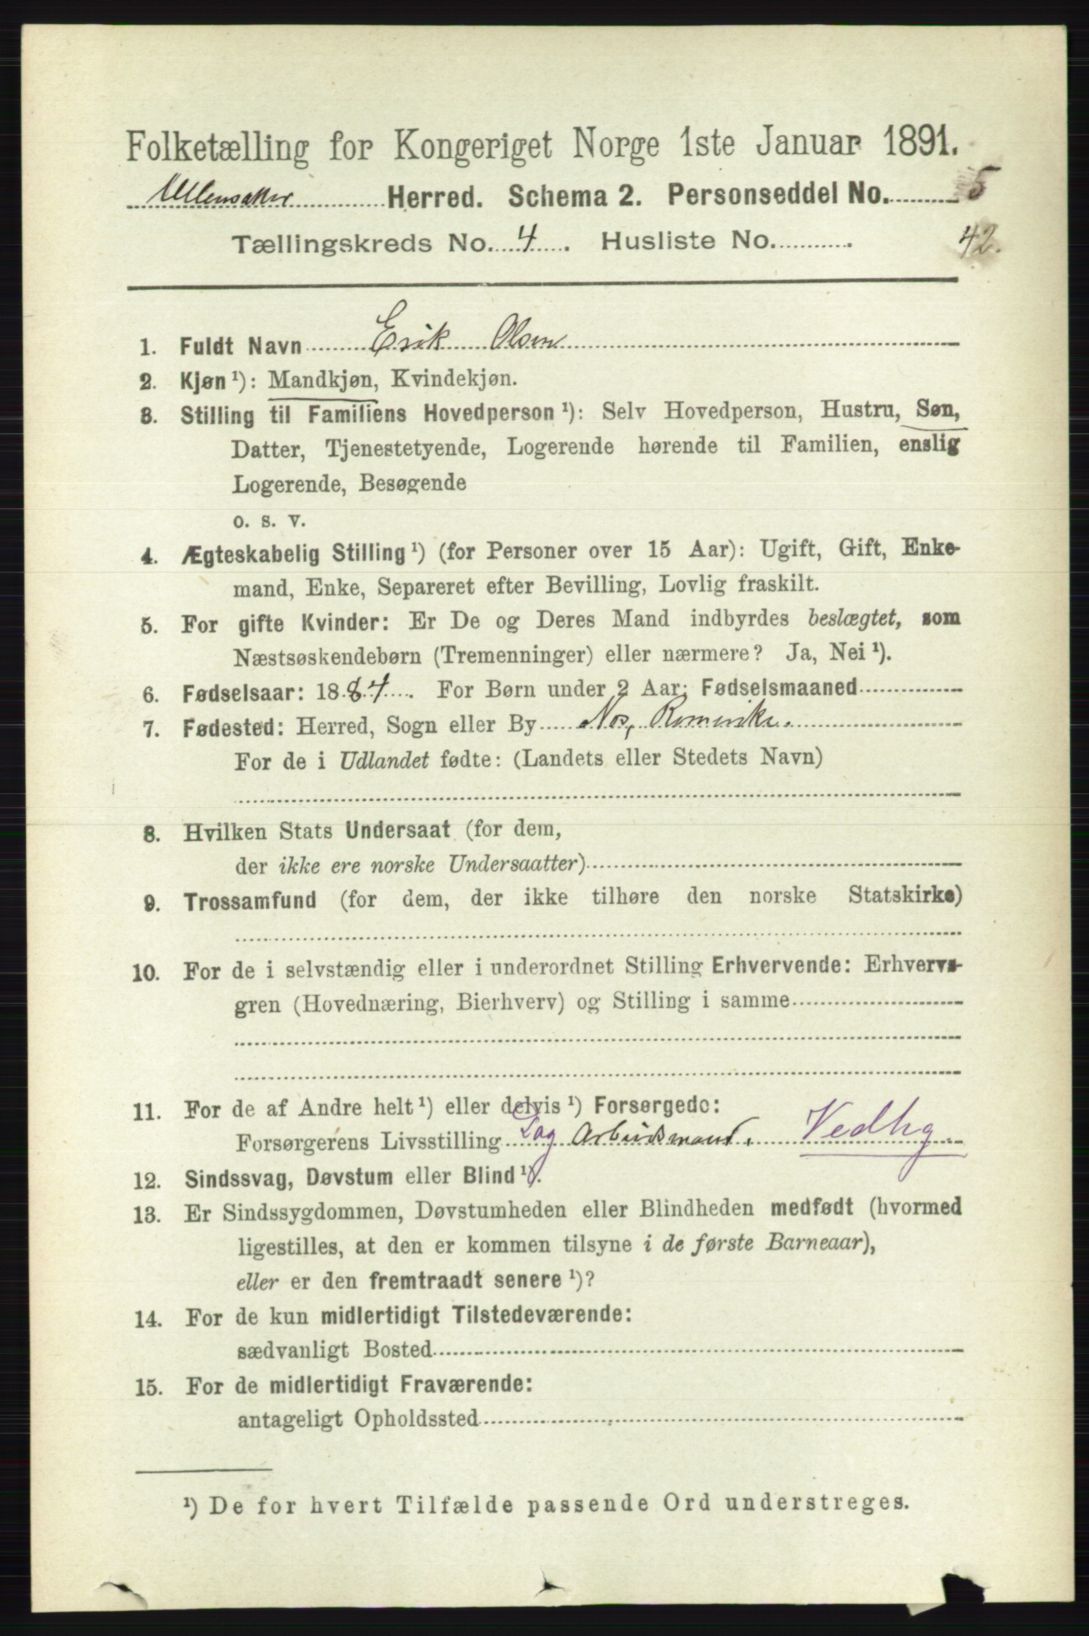 Folketælling for Kongeriget Norge 1ste Januar 1891.
Ullensaker Herred. Schema 2. Personseddel No. 5
Tællingskreds No. 4. Husliste No. 42.
1. Fuldt Navn Erik Olsen
2. Kjøn ¹): Mandkjøn, Kvindekjøn.
3. Stilling til Familiens Hovedperson ¹): Selv Hovedperson, Hustru, Søn,
Datter, Tjenestetyende, Logerende hørende til Familien, enslig
Logerende, Besøgende
o. s. v.
4. Ægteskabelig Stilling ¹) (for Personer over 15 Aar): Ugift, Gift, Enke-
mand, Enke, Separeret efter Bevilling, Lovlig fraskilt.
5. For gifte Kvinder: Er De og Deres Mand indbyrdes beslægtet, som
Næstsøskendebørn (Tremenninger) eller nærmere? Ja, Nei ¹).
6. Fødselsaar: 1884. For Børn under 2 Aar: Fødselsmaaned
7. Fødested: Herred, Sogn eller By Nes, Romerike.
For de i Udlandet fødte: (Landets eller Stedets Navn)
8. Hvilken Stats Undersaat (for dem,
der ikke ere norske Undersaatter)
9. Trossamfund (for dem, der ikke tilhøre den norske Statskirke)
10. For de i selvstændig eller i underordnet Stilling Erhvervende: Erhvervs-
gren (Hovednæring, Bierhverv) og Stilling i samme
11. For de af Andre helt ¹) eller delvis ¹) Forsørgede:
Forsørgerens Livsstilling Dag Arbeidsmand. Vedhg
12. Sindssvag, Døvstum eller Blind ¹).
13. Er Sindssygdommen, Døvstumheden eller Blindheden medfødt (hvormed
ligestilles, at den er kommen tilsyne i de første Barneaar),
eller er den fremtraadt senere ¹)?
14. For de kun midlertidigt Tilstedeværende:
sædvanligt Bosted
15. For de midlertidigt Fraværende:
antageligt Opholdssted
¹) De for hvert Tilfælde passende Ord understreges.